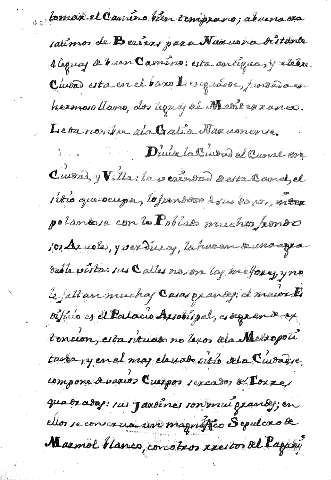 tomar el Camino bien temprano; a buena ora
salimos de Beziers para Narvona distante
4 leguas de buen Camino: esta antigua, y celebre
Ciudad esta en el baxo Lenguadoc, fundada en
hermoso llano, dos leguas del Mediterraneo.
Esta nombre a la Galia Narvonense.
Divide la Ciudad el Canal en
Ciudad, y Villa: la vecindad de este Canal, el
sitio que ocupa, lo frondoso de sus margenes, inter
polandose con lo Poblado muchos frondo
sos Arvoles, y verduras, la hacen de una agra
dable vista: sus Calles no son las mejores, y no
le faltan muchas Casas grandes; el maior E
dificio es el Palacio Arzobispal, es grande ex
tencion, esta situado no lexos de la Metropoli
tana, y en el mas elevado sitio de la Ciudad se
compone de varios Cuerpos sercados de Torres
quadradas: sus Jardines son mui grandes; en
ellos se conserva un magnifico Sepulcro de
Marmol blanco, con otros restos del Pagani